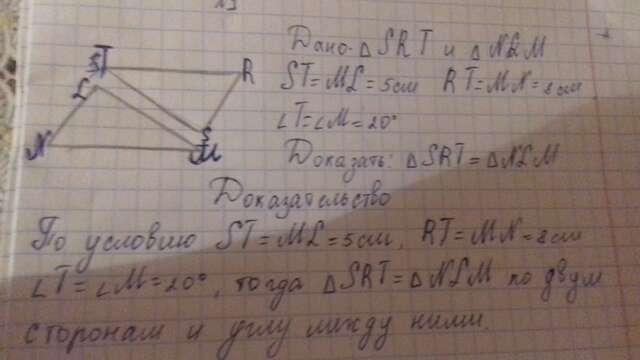 13
N
L
T
M
S
R
Дано: △SRT и △NLM
ST=ML=5см RT=MN=8см
∠T=∠M=20°
Доказать: △SRT=△NLM
Доказательство
По условию ST=ML=5см, RT=MN=8см
∠T=∠M=20°, тогда △SRT=△NLM по двум
сторонам и углу между ними.